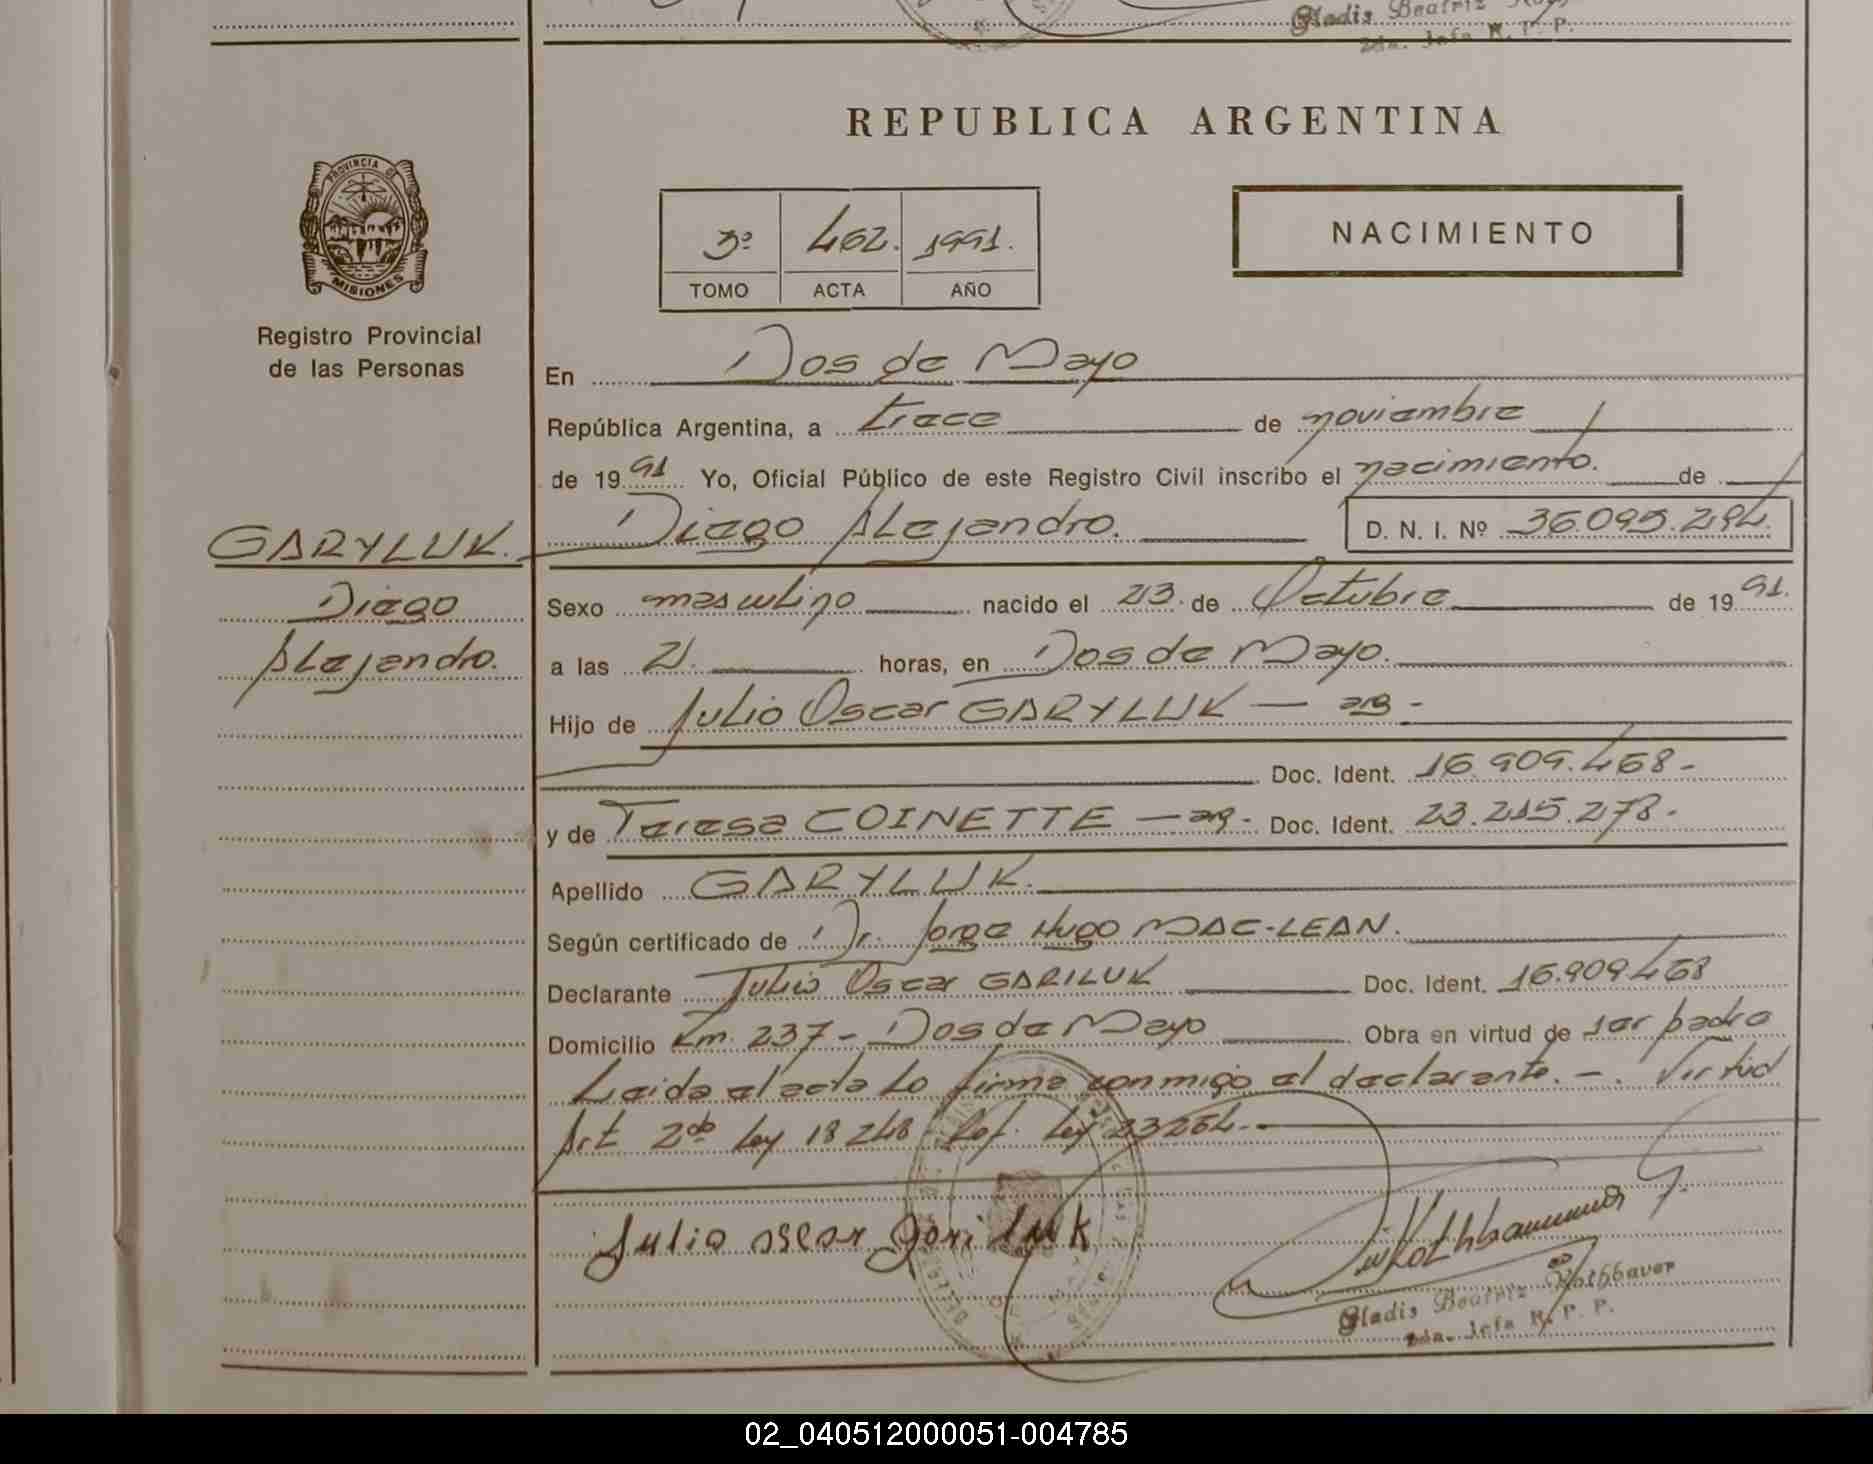 Gladis Beatriz
2da. Jefa R. P. P.
REPUBLICA ARGENTINA
PROVINCIA DE
MISIONES
Registro Provincial
de las Personas
3º 462. 1991.
TOMO ACTA AÑO
NACIMIENTO
En Dos de Mayo
República Argentina, a trece de noviembre
de 1991 Yo, Oficial Público de este Registro Civil inscribo el nacimiento. de
GARYLUK. Diego Alejandro. D. N. I. Nº 36.095.294.
Diego
Alejandro.
Sexo masculino nacido el 23. de Octubre de 1991.
a las 21. horas, en Dos de Mayo.
Hijo de Julio Oscar GARYLUK — arg -
Doc. Ident. 16.909.468-
y de Teresa COINETTE — arg - Doc. Ident. 23.215.278.
Apellido GARYLUK.
Según certificado de Dr. Jorge Hugo MAC-LEAN.
Declarante Julio Oscar GARILUK Doc. Ident. 16.909.468
Domicilio Km. 237 - Dos de Mayo Obra en virtud de ser padre
Leida el acta lo firma conmigo el declarante. -. Virtud
Art 2do Ley 18248 Ref. Ley 23264.-
Julio oscar gariluk
Gladis Beatriz Rothbauer
2da. Jefa R. P. P.
02_040512000051-004785